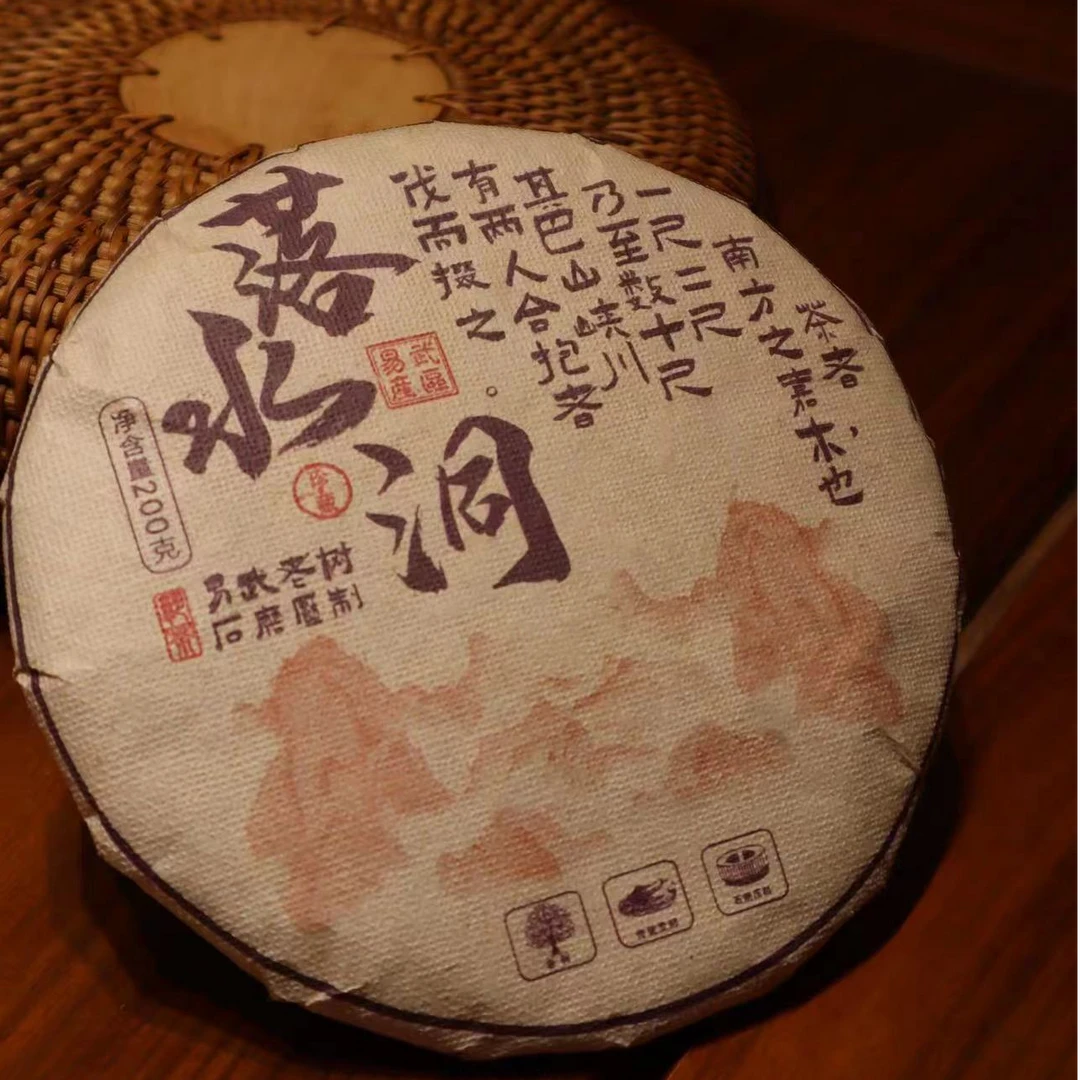 茶者
南方之嘉木也
一尺二尺
乃至数十尺
其巴山峡川
有两人合抱者
伐而掇之。
落水洞
武區
易產
珍藏
净含量200克
易武老树
石磨壓制